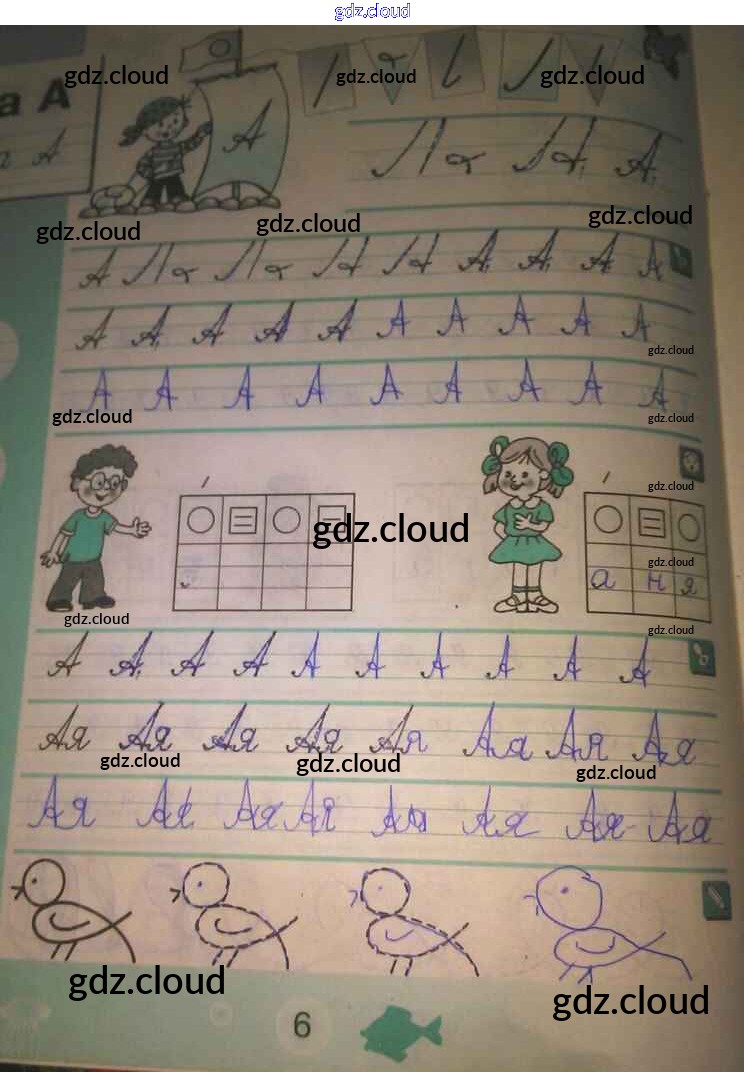 gdz.cloud
а А
А
А
gdz.cloud
gdz.cloud
gdz.cloud
А
gdz.cloud
gdz.cloud
gdz.cloud
А А А А А
А А А А А А А А А А
gdz.cloud
А А А А А А А А А
gdz.cloud
gdz.cloud
gdz.cloud
gdz.cloud
gdz.cloud
а н я
gdz.cloud
gdz.cloud
А А А А А А А А А А
Ая Ая Ая Ая Ая Ая Ая Ая
gdz.cloud
gdz.cloud
gdz.cloud
Ая Ая Ая Ая Ая Ая Ая Ая
gdz.cloud
gdz.cloud
6